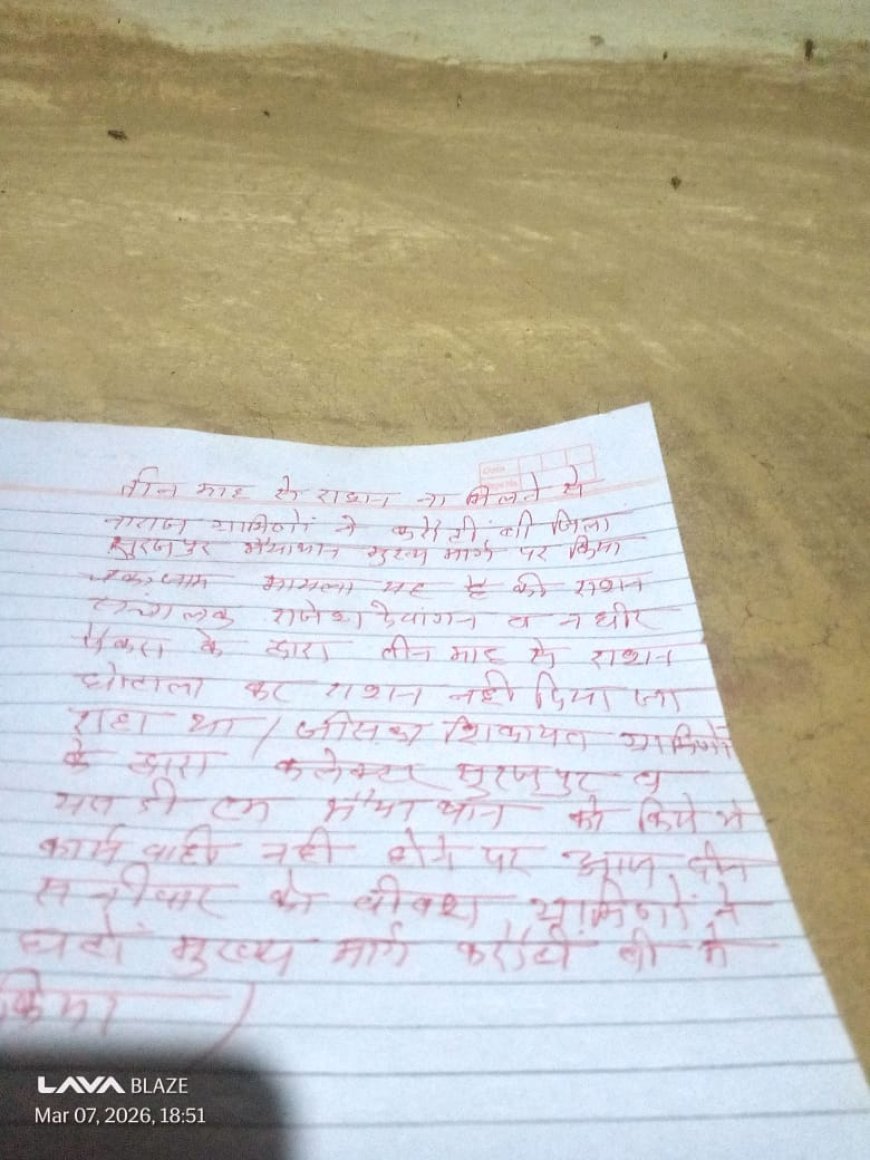 तीन माह से राशन ना मिलने से
नाराज ग्रामिणों ने करौटी बी जिला
सुरजपुर भैयाथान मुख्य मार्ग पर किया
चकाजाम मामला यह है की राशन
संचालक राजेश देवांगन व
के द्वारा तीन माह से राशन
घोटाला कर राशन नही दिया जा
राहा था / जीसका शिकायत ग्रामिणों
के द्वारा कलेक्टर सुरजपुर व
एम भैयाथान को किये थे
कार्यवाही नही होने पर आज दीन
को वीवश ग्रामिणों ने
घंटों मुख्य मार्ग करौटी बी मे
किया
LAVA BLAZE
Mar 07, 2026, 18:51